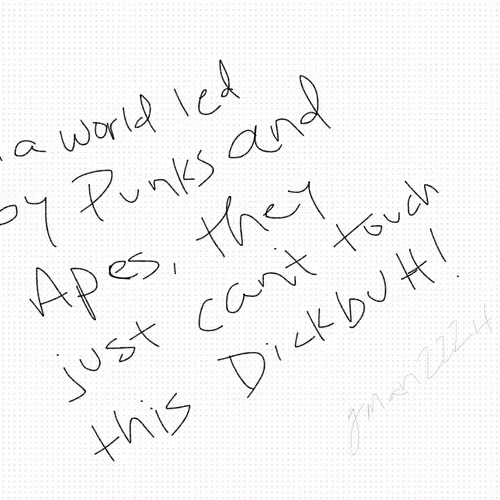 a world led
by Punks and
Apes, they
just can't touch
this Dickbutt!
gman2224